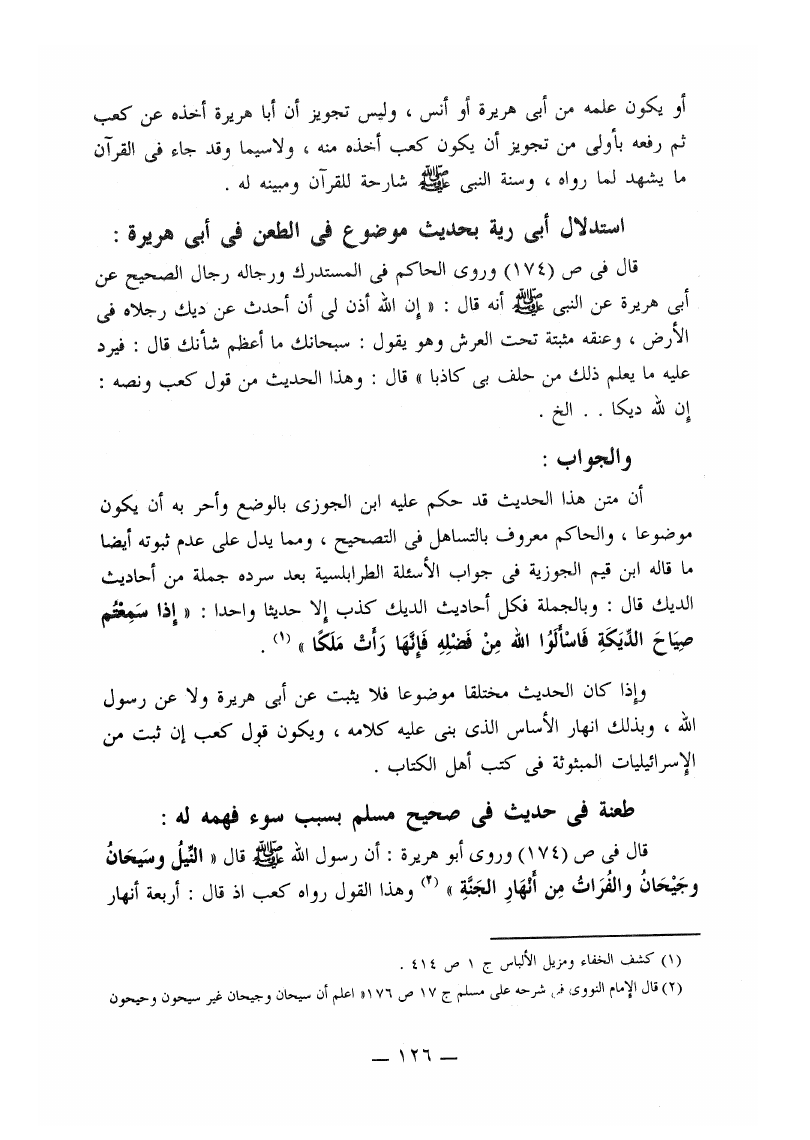 أو يكون علمه من أبى هريرة أو أنس ، وليس تجويز أن أبا هريرة أخذه عن كعب
ثم رفعه بأولى من تجويز أن يكون كعب أخذه منه ، ولاسيما وقد جاء فى القرآن
ما يشهد لما رواه ، وسنة النبى ﷺ شارحة للقرآن ومبينه له .
استدلال أبى رية بحديث موضوع فى الطعن فى أبى هريرة :
قال فى ص (١٧٤) وروى الحاكم فى المستدرك ورجاله رجال الصحيح عن
أبى هريرة عن النبى ﷺ أنه قال : « إن الله أذن لى أن أحدث عن ديك رجلاه فى
الأرض ، وعنقه مثبتة تحت العرش وهو يقول : سبحانك ما أعظم شأنك قال : فيرد
عليه ما يعلم ذلك من حلف بى كاذبا » قال : وهذا الحديث من قول كعب ونصه :
إن لله ديكا . . الخ .
والجواب :
أن متن هذا الحديث قد حكم عليه ابن الجوزى بالوضع وأحر به أن يكون
موضوعا ، والحاكم معروف بالتساهل فى التصحيح ، ومما يدل على عدم ثبوته أيضا
ما قاله ابن قيم الجوزية فى جواب الأسئلة الطرابلسية بعد سرده جملة من أحاديث
الديك قال : وبالجملة فكل أحاديث الديك كذب إلا حديثا واحدا : « إذا سَمِعْتُم
صِيَاحَ الدِّيَكَةِ فَاسْأَلُوا الله مِنْ فَضْلِهِ فَإِنَّهَا رَأَتْ مَلَكًا » (١) .
وإذا كان الحديث مختلقا موضوعا فلا يثبت عن أبى هريرة ولا عن رسول
الله ، وبذلك انهار الأساس الذى بنى عليه كلامه ، ويكون قول كعب إن ثبت من
الإسرائيليات المبثوثة فى كتب أهل الكتاب .
طعنة فى حديث فى صحيح مسلم بسبب سوء فهمه له :
قال فى ص (١٧٤) وروى أبو هريرة : أن رسول الله ﷺ قال « النِّيلُ وسَيَحَانُ
وجَيْحَانُ والفُرَاتُ مِن أَنْهَارِ الجَنَّةِ » (٢) وهذا القول رواه كعب اذ قال : أربعة أنهار
(١) كشف الخفاء ومزيل الألباس ج ١ ص ٤١٤ .
(٢) قال الإمام النووى فى شرحه على مسلم ج ١٧ ص ١٧٦« اعلم أن سيحان وجيحان غير سيحون وحيحون
— ١٢٦ —